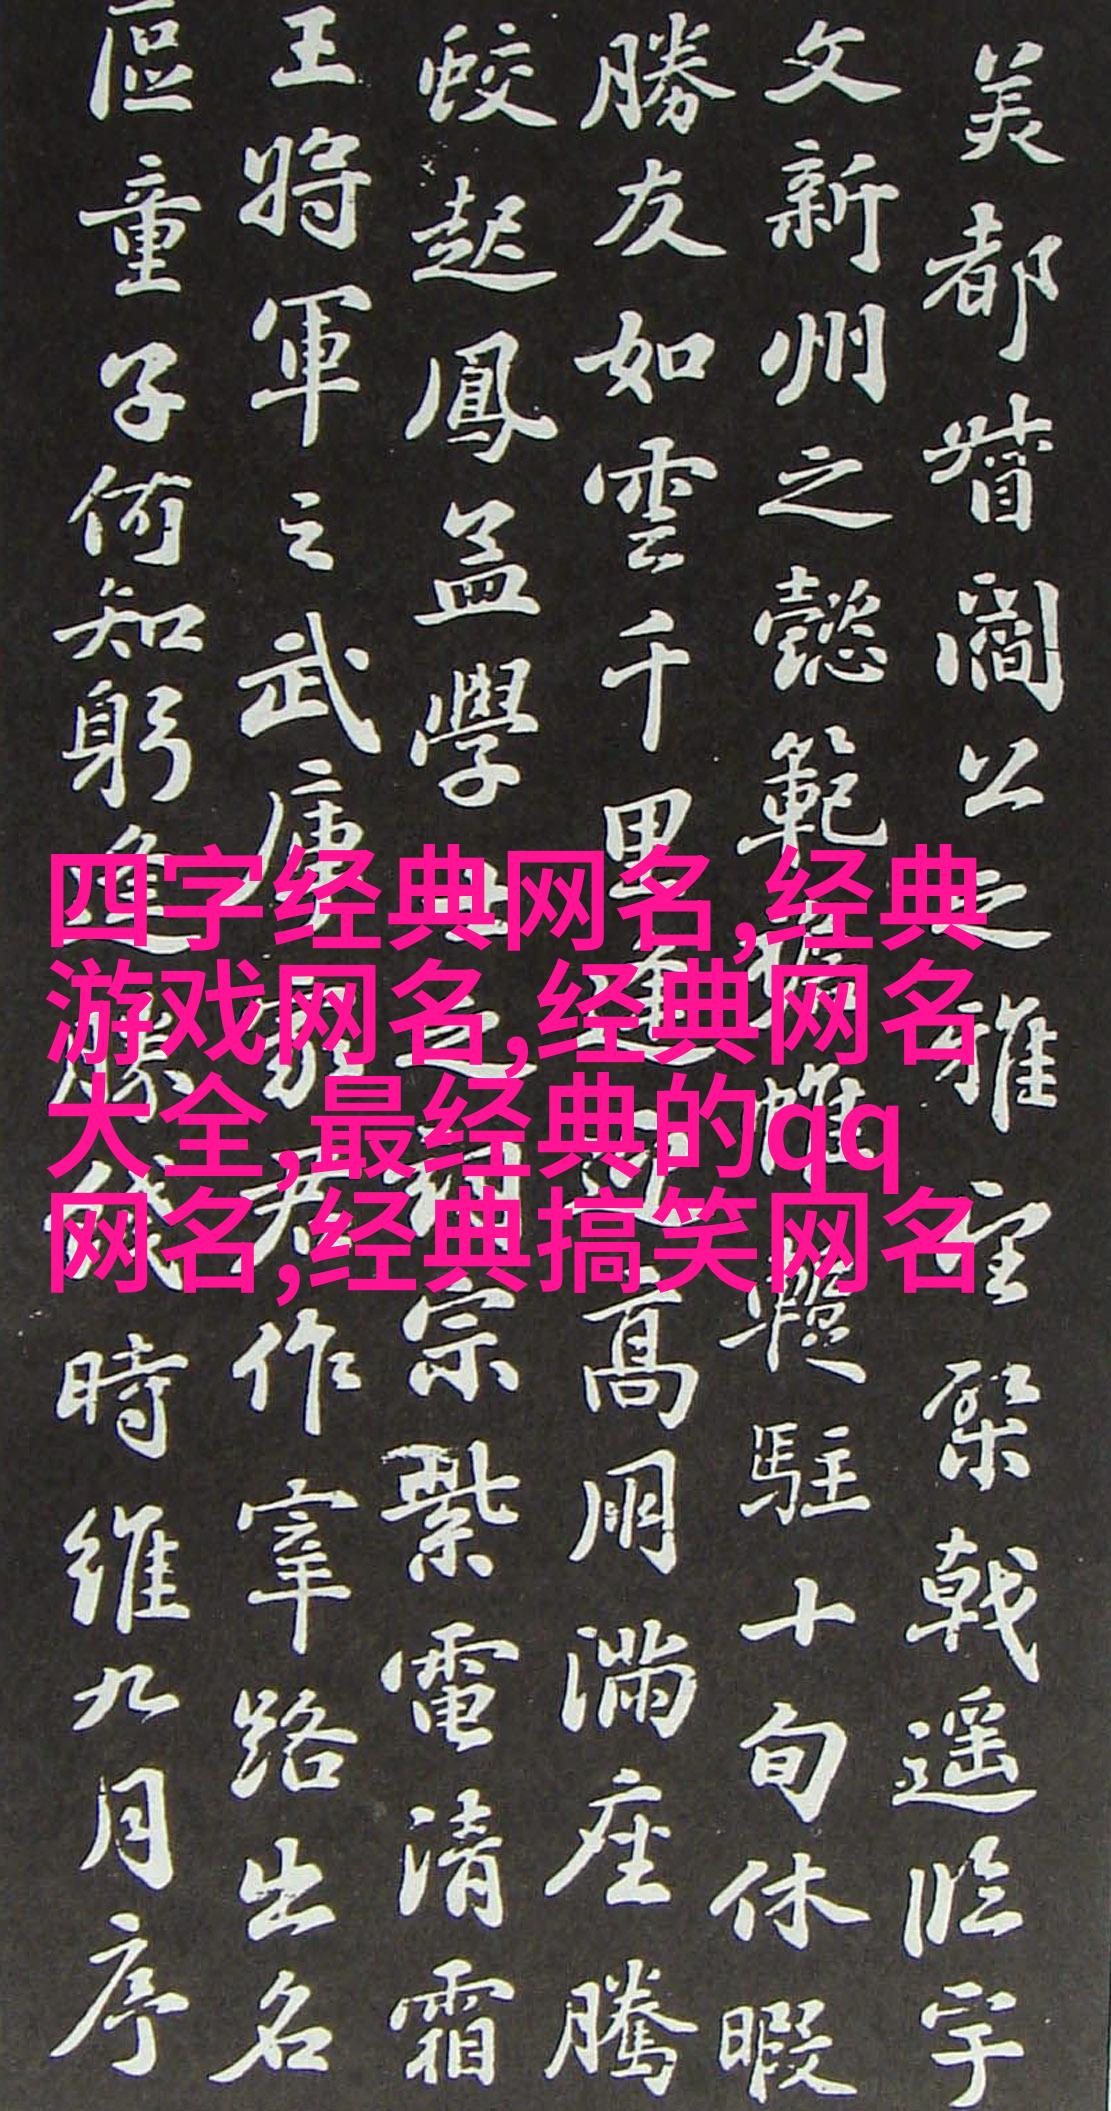 美都督閻公之雅望棨戟遥临宇
文新州之懿範襜帷暫駐十旬休暇
勝友如雲千里逢迎高朋滿座騰
蛟起鳳孟學士之詞宗紫電清霜
王將軍之武庫家君作宰路出名
區童子何知躬逢勝餞時維九月序
四字经典网名,经典
游戏网名,经典网名
大全,最经典的qq
网名,经典搞笑网名